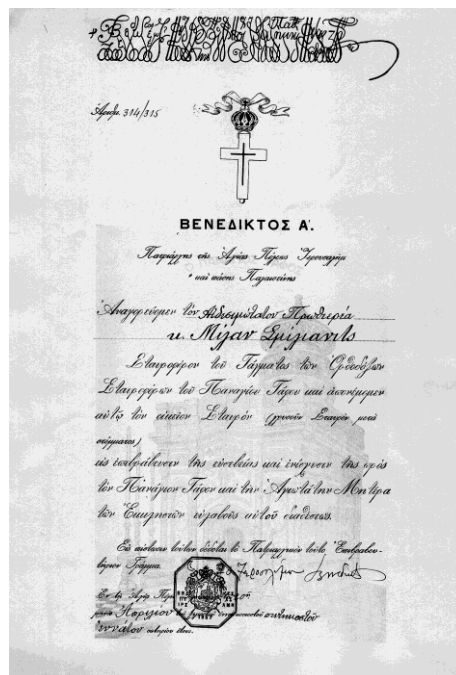 Ἀριθμ. 314/315
ΒΕΝΕΔΙΚΤΟΣ Α΄.
Πατριάρχης τῆς Ἁγίας Πόλεως Ἱερουσαλὴμ
καὶ πάσης Παλαιστίνης
Ἀναγορεύομεν τὸν Αἰδεσιμώτατον Πρωθιερέα
κ. Μίλαν Σμίλιανιτς
Σταυροφόρον τοῦ Τάγματος τῶν Ὀρθοδόξων
Σταυροφόρων τοῦ Παναγίου Τάφου καὶ ἀπονέμομεν
αὐτῷ τὸν οἰκεῖον Σταυρὸν (χρυσοῦν Σταυρὸν μετὰ
στέμματος)
εἰς ἐπιβράβευσιν τῆς εὐσεβείας καὶ ἐπίγνωσιν τῆς πρὸς
τὸν Πανάγιον Τάφον καὶ τὴν Ἁγιωτάτην Μητέρα
τῶν Ἐκκλησιῶν εὐλαβοῦς αὐτοῦ διαθέσεως.
Εἰς πίστωσιν τούτων δίδοται τὸ Πατριαρχικὸν τοῦτο Ἐπιβραβευ-
τήριον Γράμμα.
Ἐν τῇ Ἁγίᾳ
Ἀπριλίου
ἐννάτου σωτηρίου ἔτους.